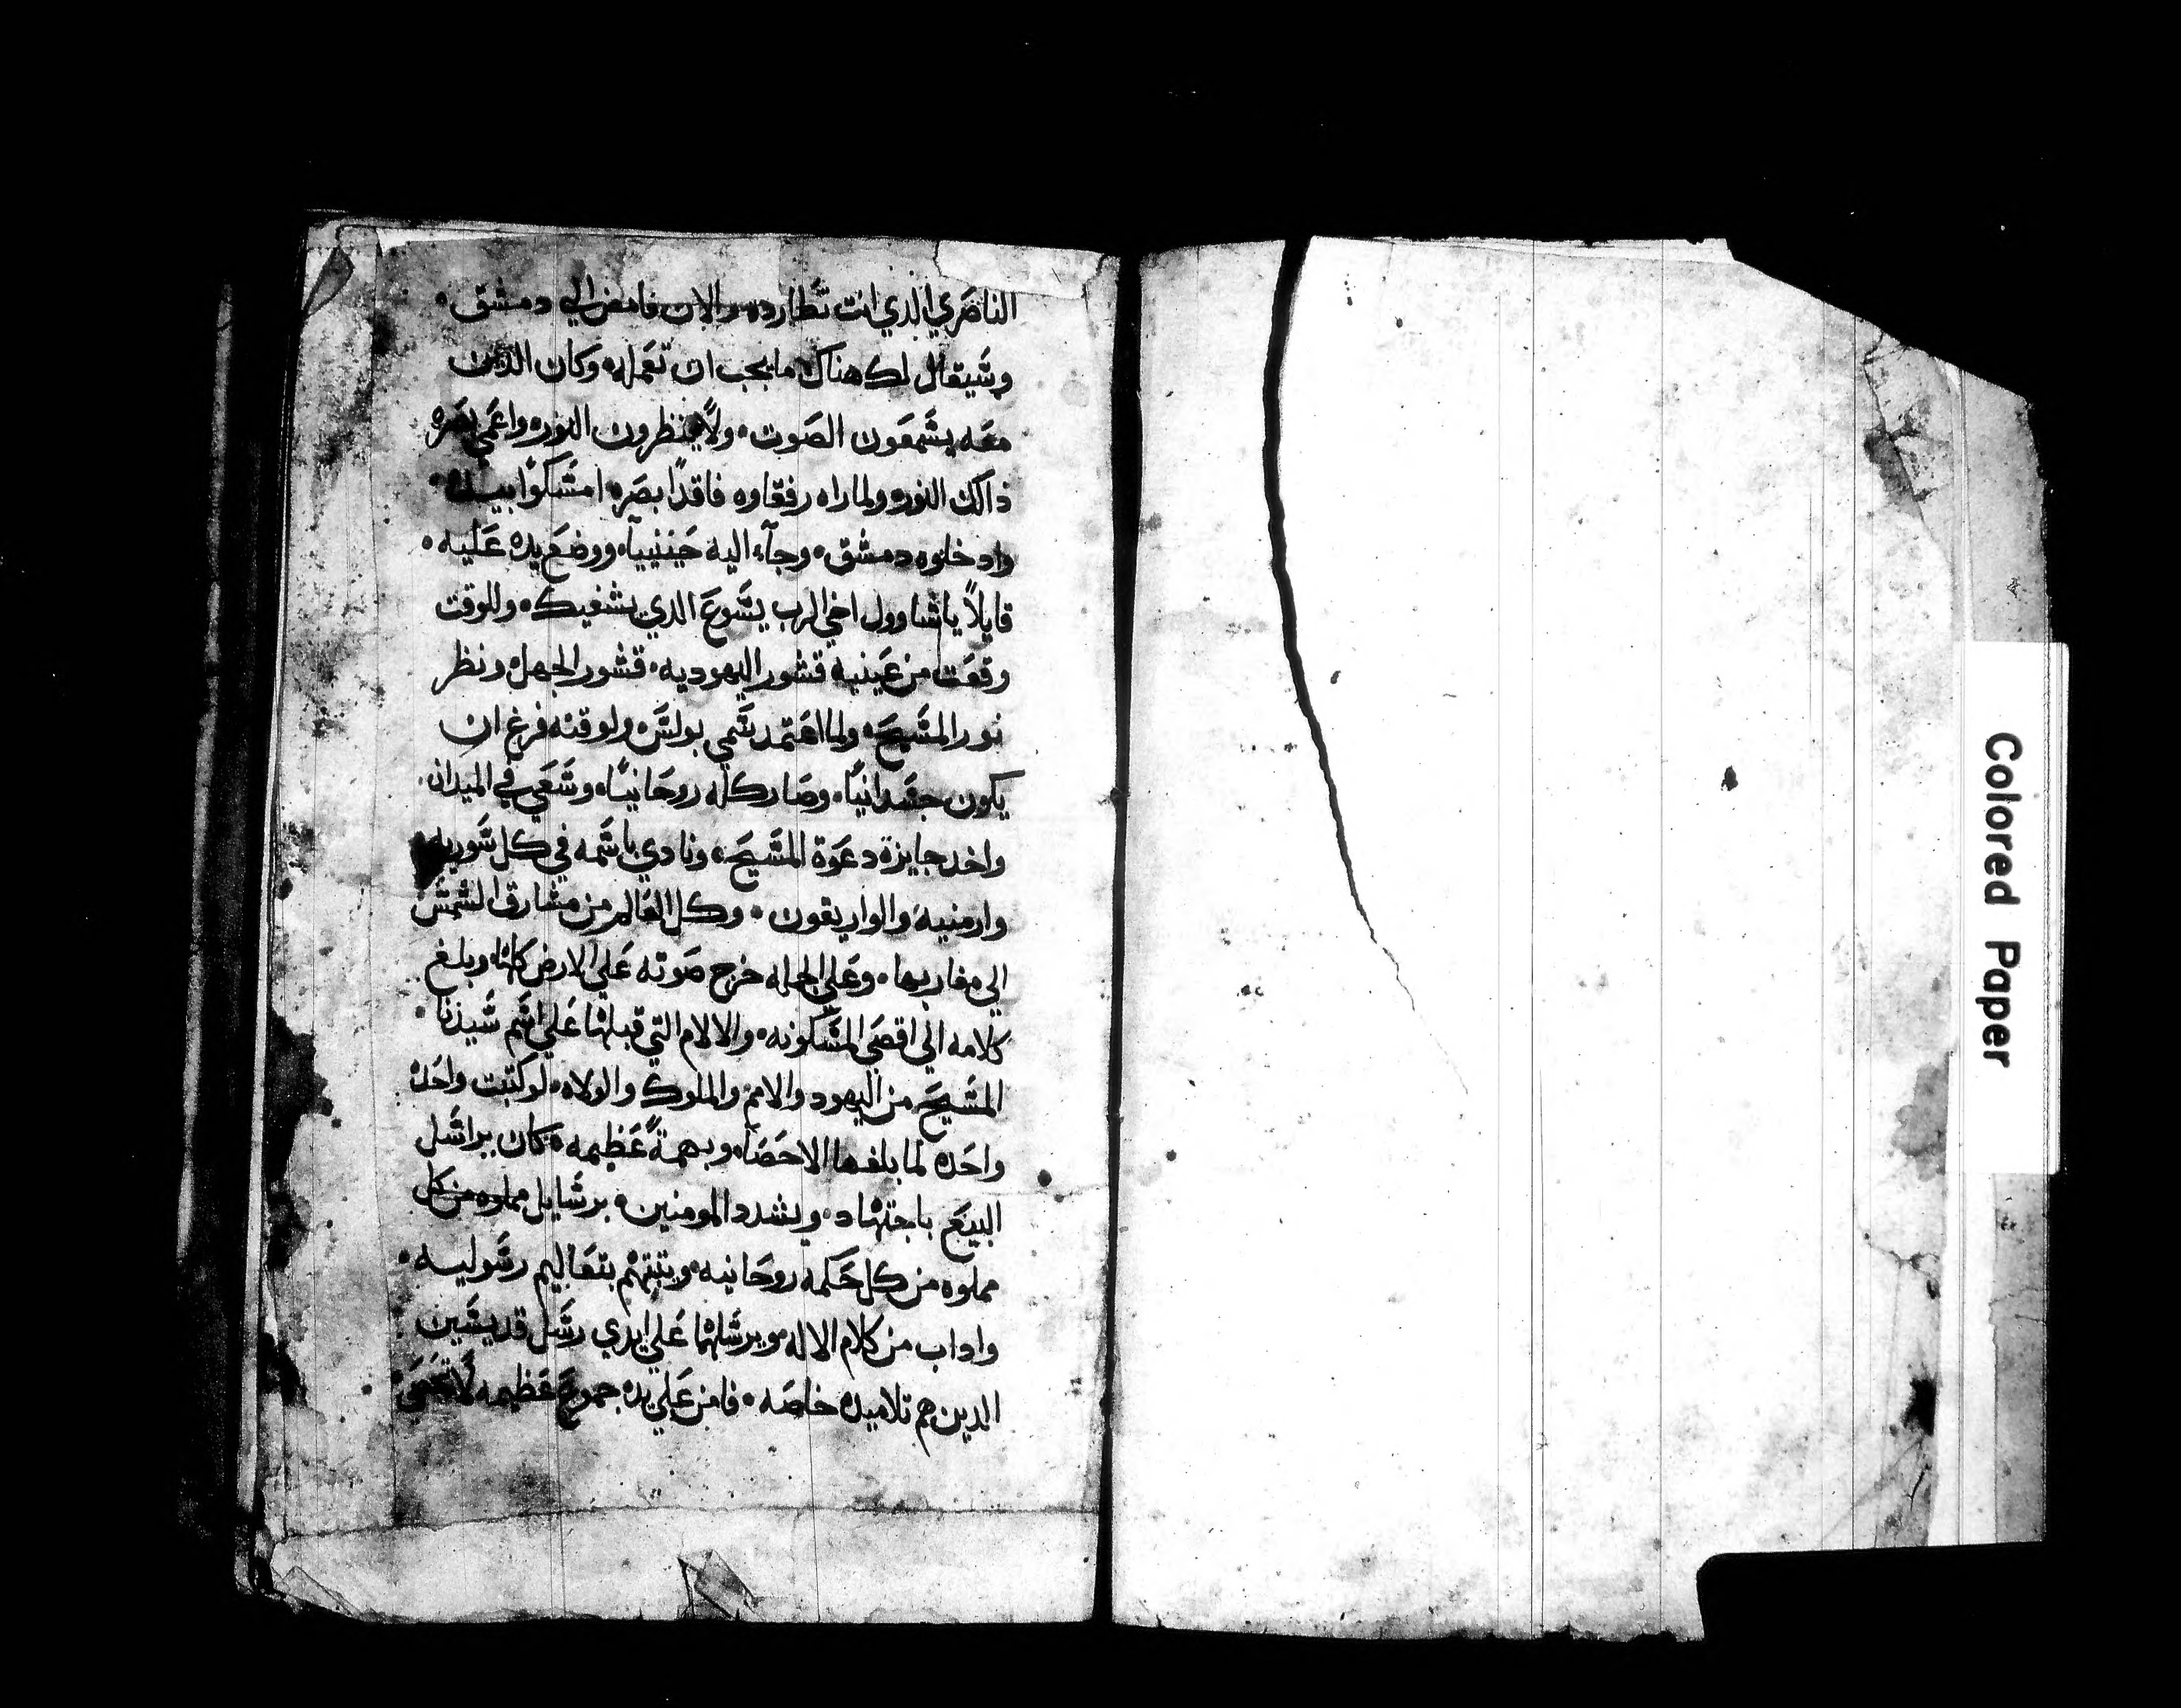 الناصَري الدي انت تطارده والان فامض الي دمشق ۰
وسَيقال لك هناك ما يجب ان تعَمله وكان الدين
معَه يسَمعَون الصَوت ۰ ولا ينظرون النوره واعَمي بصَره
ذالك النوره ولما راه رفقاوه فاقدًا بصَره امسَكوا بيده ۰
وادخلوه دمشق ۰ وجآء اليه حَننيآه ووضعَ يده عَليه ۰
قايلاً ياشاوول اخي الرب يسَوعَ الدي يشفيك ۰ وللوقت
وقعَت من عَينيه قشور اليهوديه ۰ قشور الجهل ۰ ونظر
نور المسَيحَ ۰ ولما اعَتمد سَمي بولسَ ۰ ولوقته فرغ ان
يكون جسَدانيًا ۰ وصَار كله روحَانيًا ۰ وسَعَي في الميدان ۰
واخد جايزة دعَوة المسَيحَ ۰ ونادي باسَمه في كل سَوريه
وارمنيه والواريقون ۰ وكل العَالم من مشارق الشمسَ
الي مغاربها ۰ وعَلي الجمله خرج صَوته عَلي الارض كلها ۰ وبلغ
كلامه الي اقصَي المسَكونه ۰ والالام التي قبلها عَلي اسَم سَيدنا
المسَيحَ من اليهود والامم والملوك والولاه ۰ لو كتبت واحَده
واحَده لما بلغها الاحصَاه وبهمةً عَظيمه ۰ كان يراسَل
البيعَ باجتهاد ۰ ويشدد المومنين ۰ برسَايل مملوه من كل
مملوه من كل حَكمه روحَانيه ۰ ويتبتهم بتعَاليم رسَوليه ۰
واداب من كلام الاله ويرسَلها عَلي ايدي رسَل قديسَين
الدين هم تلاميده خاصَه ۰ فامن عَلي يده جموعَ عَظيمه لا تحَصَي
Colored Paper